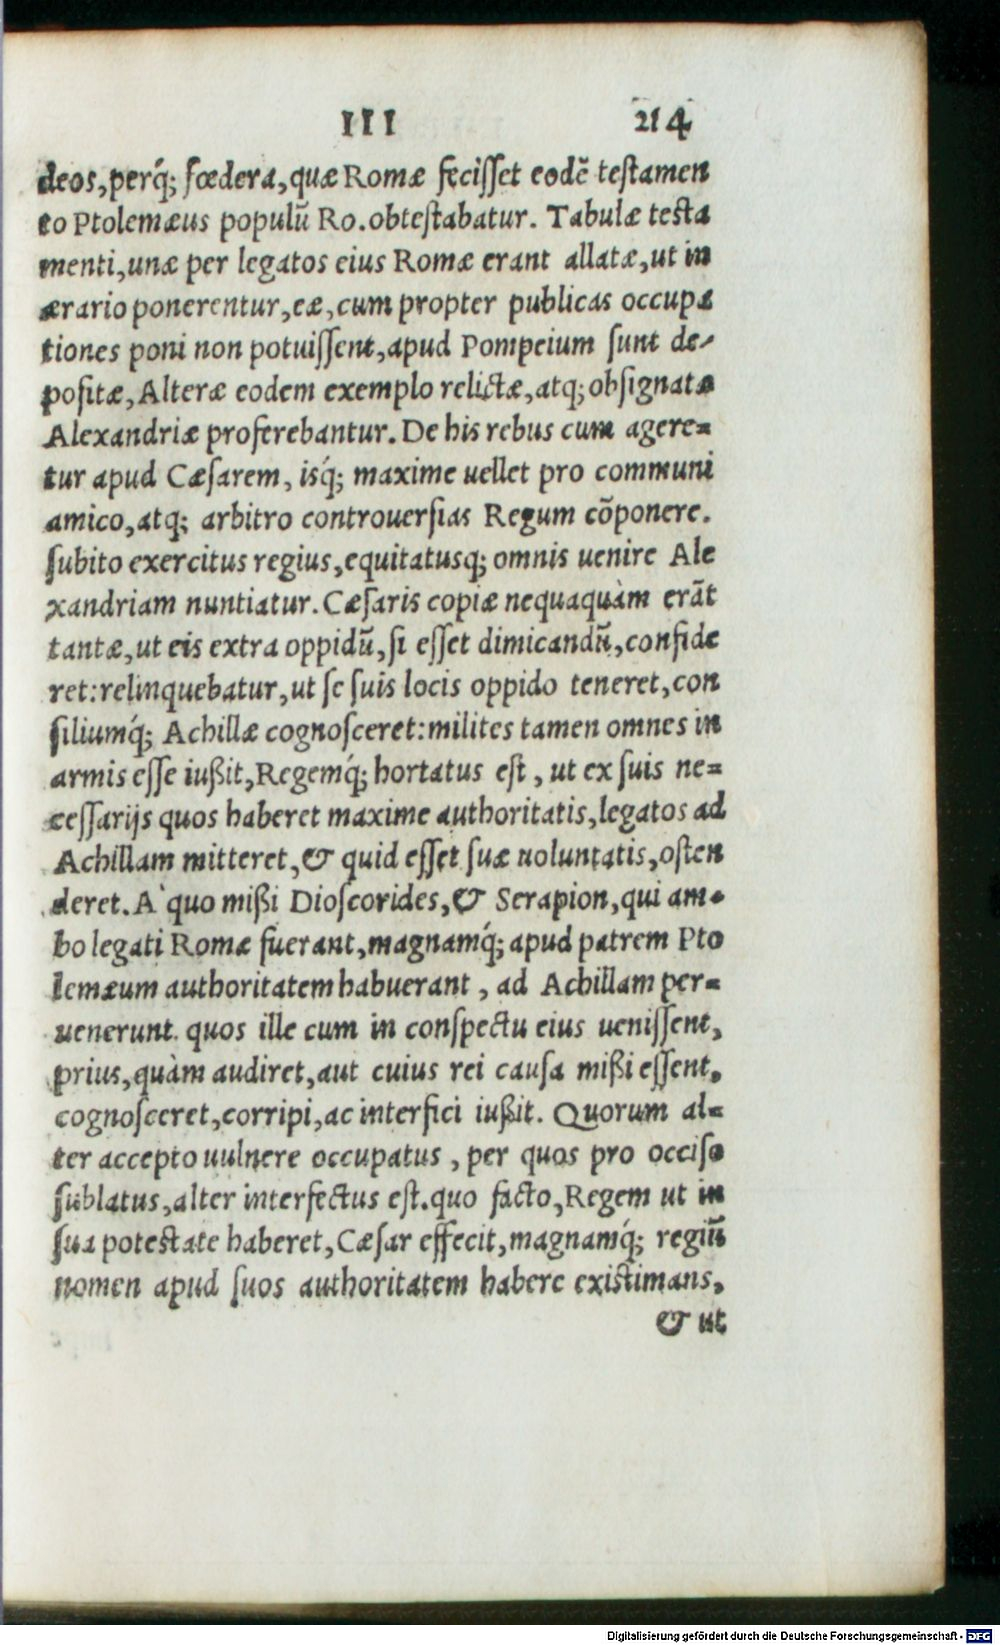 III 214
deos, perq́; fœdera, quæ Romæ fecisset eodē testamen
to Ptolemæus populū Ro. obtestabatur. Tabulæ testa
menti, unæ per legatos eius Romæ erant allatæ, ut in
ærario ponerentur, eæ, cum propter publicas occupa
tiones poni non potuissent, apud Pompeium sunt de-
positæ, Alteræ eodem exemplo relictæ, atq; obsignatæ
Alexandriæ proferebantur. De his rebus cum agere=
tur apud Cæsarem, isq́; maxime uellet pro communi
amico, atq; arbitro controuersias Regum cōponere.
subito exercitus regius, equitatusq; omnis uenire Ale
xandriam nuntiatur. Cæsaris copiæ nequaquàm erāt
tantæ, ut eis extra oppidū, si esset dimicandū, confide
ret: relinquebatur, ut se suis locis oppido teneret, con
siliumq́; Achillæ cognosceret: milites tamen omnes in
armis esse iußit, Regemq́; hortatus est, ut ex suis ne=
cessarijs quos haberet maxime authoritatis, legatos ad
Achillam mitteret, & quid esset suæ uoluntatis, osten
deret. A` quo mißi Dioscorides, & Serapion, qui am-
bo legati Romæ fuerant, magnamq́; apud patrem Pto
lemæum authoritatem habuerant, ad Achillam per=
uenerunt. quos ille cum in conspectu eius uenissent,
prius, quàm audiret, aut cuius rei causa mißi essent,
cognosceret, corripi, ac interfici iußit. Quorum al=
ter accepto uulnere occupatus, per quos pro occiso
sublatus, alter interfectus est. quo facto, Regem ut in
sua potestate haberet, Cæsar effecit, magnamq́; regiū
nomen apud suos authoritatem habere existimans,
& ut
Digitalisierung gefördert durch die Deutsche Forschungsgemeinschaft - DFG